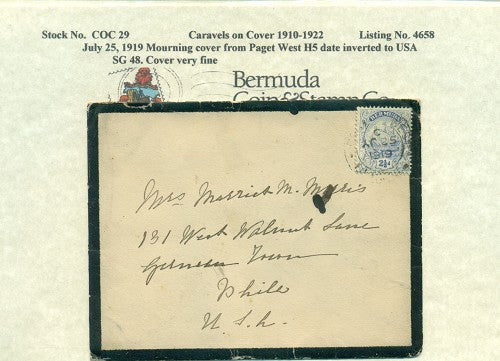 Stock No. COC 29 Caravels on Cover 1910-1922 Listing No. 4658
July 25, 1919 Mourning cover from Paget West H5 date inverted to USA
SG 48. Cover very fine
Bermuda
Coin & Stamp Co.
BERMUDA
1919
2½d
Mrs Merrick M. Morris
131 West Walnut Lane
German Town
Phila
U.S.A.